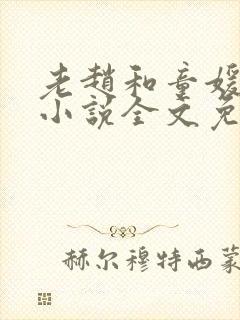 老趙和童媛
小說全文免
赫尔穆特西蒙